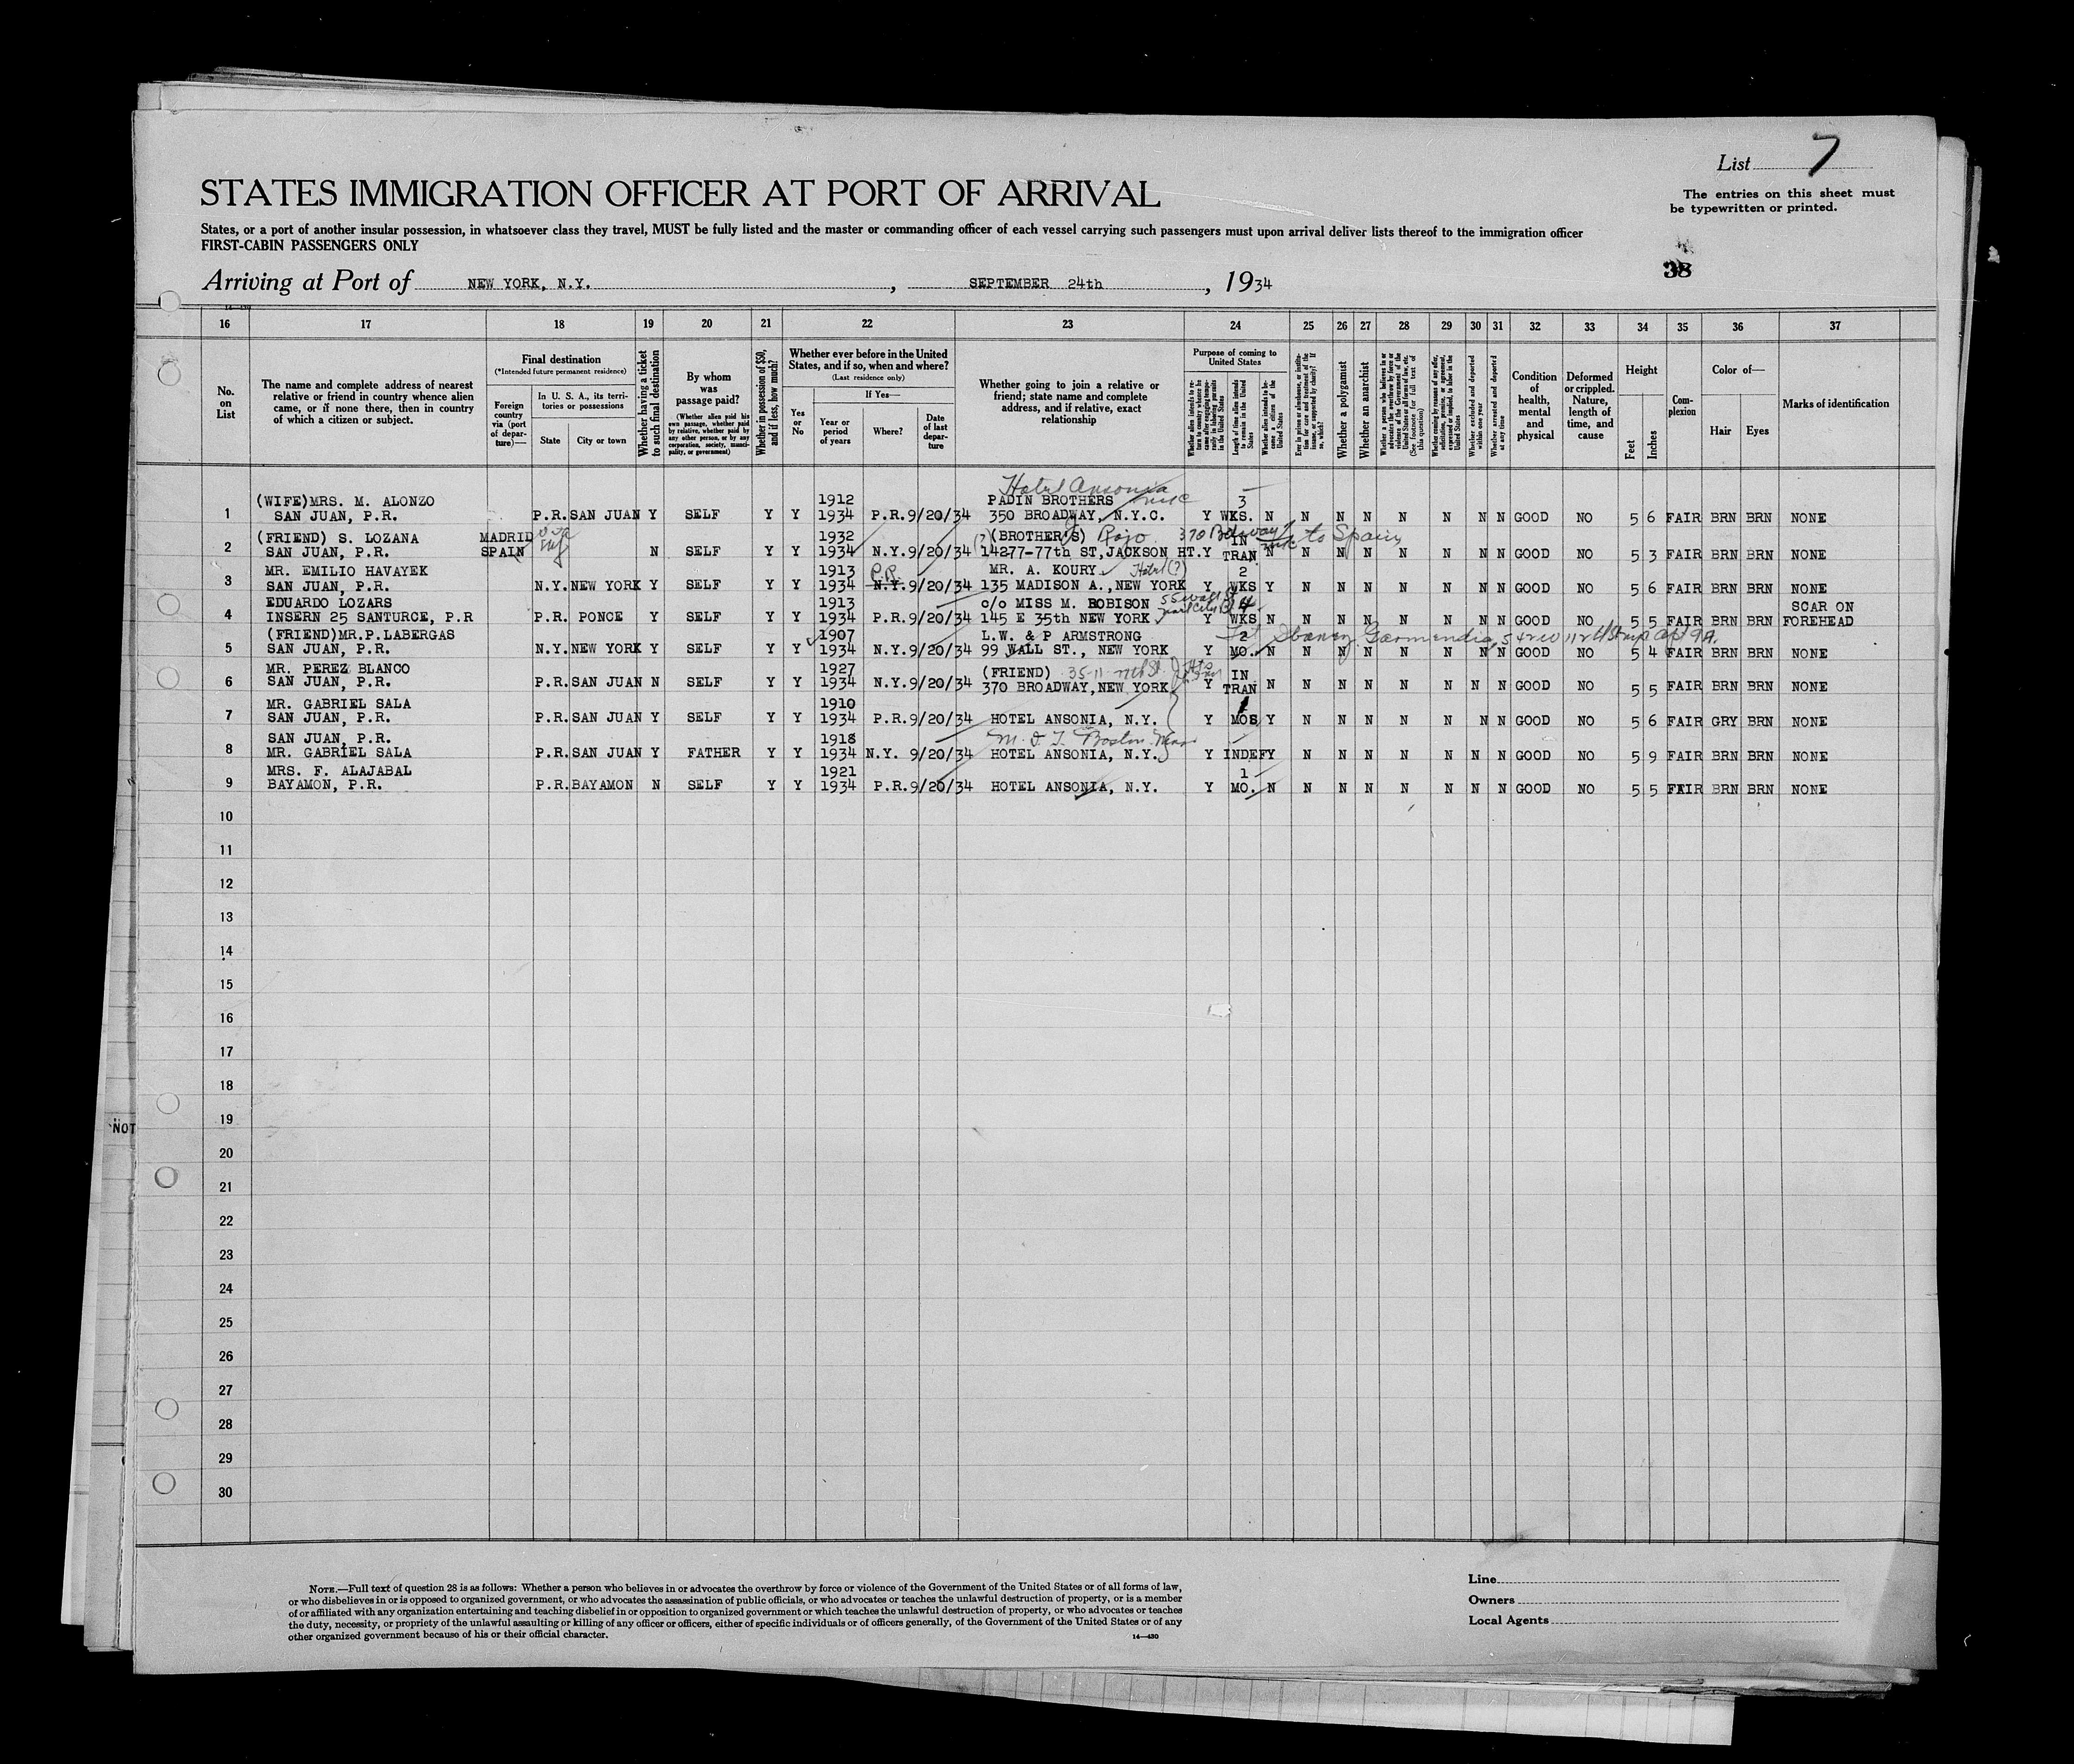 List 7
STATES IMMIGRATION OFFICER AT PORT OF ARRIVAL
The entries on this sheet must
be typewritten or printed.
States, or a port of another insular possession, in whatsoever class they travel, MUST be fully listed and the master or commanding officer of each vessel carrying such passengers must upon arrival deliver lists thereof to the immigration officer
FIRST-CABIN PASSENGERS ONLY
38
Arriving at Port of NEW YORK, N.Y. , SEPTEMBER 24th , 1934
16 17 18 19 20 21 22 23 24 25 26 27 28 29 30 31 32 33 34 35 36 37
No. on List
The name and complete address of nearest relative or friend in country whence alien came, or if none there, then in country of which a citizen or subject.
Final destination
(*Intended future permanent residence)
Foreign country via (port of departure)—
In U. S. A., its territories or possessions
State
City or town
Whether having a ticket to such final destination
By whom was passage paid?
(Whether alien paid his own passage, whether paid by relative, whether paid by any other person, or by any corporation, society, municipality, or government)
Whether in possession of $50, and if less, how much?
Whether ever before in the United States, and if so, when and where?
(Last residence only)
Yes or No
If Yes—
Year or period of years
Where?
Date of last departure
Whether going to join a relative or friend; state name and complete address, and if relative, exact relationship
Purpose of coming to United States
Length of time alien intends to remain in the United States
Whether alien intends to become a citizen of the United States
Whether a polygamist
Whether an anarchist
Whether excluded and deported within one year
Whether arrested and deported at any time
Condition of health, mental and physical
Deformed or crippled. Nature, length of time, and cause
Height
Feet
Inches
Complexion
Color of—
Hair
Eyes
Marks of identification
Hotel Ansonia
(WIFE)MRS. M. ALONZO 1912 PADIN BROTHERS 3
1 SAN JUAN, P.R. P.R. SAN JUAN Y SELF Y Y 1934 P.R. 9/20/34 350 BROADWAY, N.Y.C. Y WKS. N N N N N N N N GOOD NO 5 6 FAIR BRN BRN NONE
(FRIEND) S. LOZANA MADRID 1932 (BROTHER'S) Rojo 370 Bdway IN to Spain
2 SAN JUAN, P.R. SPAIN N SELF Y Y 1934 N.Y. 9/20/34 (?) 14277-77th ST, JACKSON HT. Y TRAN N N N N N N N N GOOD NO 5 3 FAIR BRN BRN NONE
MR. EMILIO HAVAYEK 1913 P.R. MR. A. KOURY Hotel (?) 2
3 SAN JUAN, P.R. N.Y. NEW YORK Y SELF Y Y 1934 N.Y. 9/20/34 135 MADISON A., NEW YORK Y WKS Y N N N N N N N GOOD NO 5 6 FAIR BRN BRN NONE
EDUARDO LOZARS 1913 c/o MISS M. ROBISON 55 Wall St 4 SCAR ON
4 INSERN 25 SANTURCE, P.R P.R. PONCE Y SELF Y Y 1934 P.R. 9/20/34 145 E 35th NEW YORK Y WKS N N N N N N N N GOOD NO 5 5 FAIR BRN BRN FOREHEAD
(FRIEND)MR.P.LABERGAS 1907 L.W. & P ARMSTRONG 2
5 SAN JUAN, P.R. N.Y. NEW YORK Y SELF Y Y 1934 N.Y. 9/20/34 99 WALL ST., NEW YORK Y MO. N N N N N N N N GOOD NO 5 4 FAIR BRN BRN NONE
MR. PEREZ BLANCO 1927 (FRIEND) IN
6 SAN JUAN, P.R. P.R. SAN JUAN N SELF Y Y 1934 N.Y. 9/20/34 370 BROADWAY, NEW YORK Y TRAN N N N N N N N N GOOD NO 5 5 FAIR BRN BRN NONE
MR. GABRIEL SALA 1910 1
7 SAN JUAN, P.R. P.R. SAN JUAN Y SELF Y Y 1934 P.R. 9/20/34 HOTEL ANSONIA, N.Y. Y MOS Y N N N N N N N GOOD NO 5 6 FAIR GRY BRN NONE
SAN JUAN, P.R. 1918 M.I.T. Boston Mass
8 MR. GABRIEL SALA P.R. SAN JUAN Y FATHER Y Y 1934 N.Y. 9/20/34 HOTEL ANSONIA, N.Y. Y INDEF Y N N N N N N N GOOD NO 5 9 FAIR BRN BRN NONE
MRS. F. ALAJABAL 1921 1
9 BAYAMON, P.R. P.R. BAYAMON N SELF Y Y 1934 P.R. 9/20/34 HOTEL ANSONIA, N.Y. Y MO. N N N N N N N N GOOD NO 5 5 FAIR BRN BRN NONE
10
11
12
13
14
15
16
17
18
19
NOT
20
21
22
23
24
25
26
27
28
29
30
NOTE.—Full text of question 28 is as follows: Whether a person who believes in or advocates the overthrow by force or violence of the Government of the United States or of all forms of law,
or who disbelieves in or is opposed to organized government, or who advocates the assassination of public officials, or who advocates or teaches the unlawful destruction of property, or is a member
of or affiliated with any organization entertaining and teaching disbelief in or opposition to organized government or which teaches the unlawful destruction of property, or who advocates or teaches
the duty, necessity, or propriety of the unlawful assaulting or killing of any officer or officers, either of specific individuals or of officers generally, of the Government of the United States or of any
other organized government because of his or their official character.
14—430
Line
Owners
Local Agents